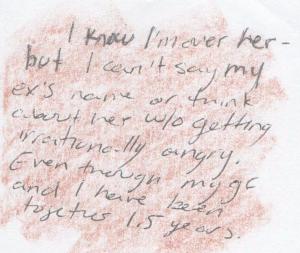 I know I'm over her -
but I can't say my
ex's name or think
about her w/o getting
irrationally angry.
Even though my gf
and I have been
together 1.5 years.